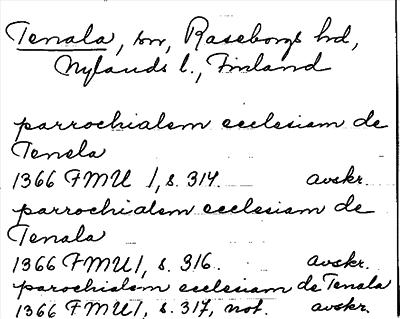 Tenala, sn, Raseborgs hd,
Nylands l., Finland
parrochialem ecclesiam de
Tenela
1366 FMU 1, s. 314. avskr.
parrochialem ecclesiam de
Tenala
1366 FMU 1, s. 316. avskr.
parrochialem ecclesiam de Tenala
1366 FMU 1, s. 317, not. avskr.